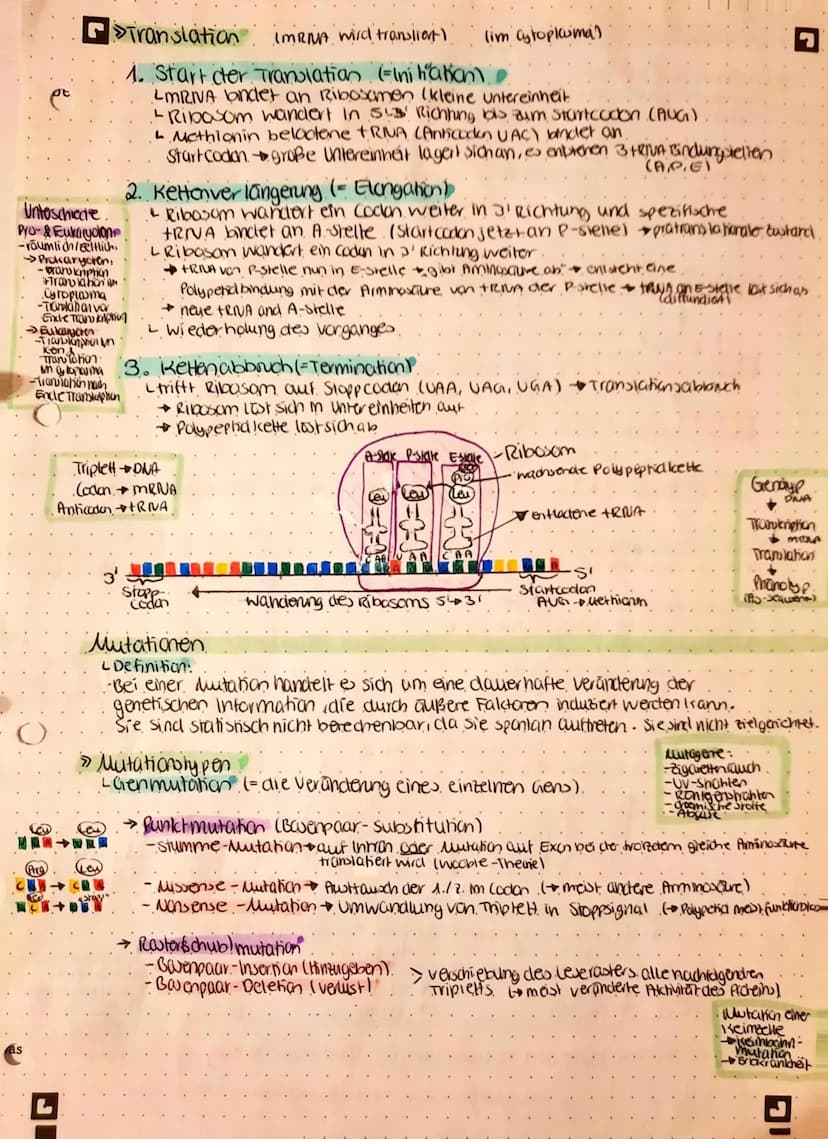 »Translation (mRNA wird transliert) (im Cytoplasma)
1. Start der Translation (=Initiation)
↳ mRNA bindet an Ribosomen (kleine Untereinheit
↳ Ribosom wandert in 5'↳3' Richtung bis zum Startcodon (AUG)
↳ Methionin beladene tRNA (Anticodon UAC) bindet an
Startcodon → große Untereinheit lagert sich an, es entstehen 3 tRNA Bindungstellen
(A,P,E)
2. Kettenverlängerung (= Elongation)
↳ Ribosom wandert ein Codon weiter in 3' Richtung und spezifische
tRNA bindet an A-Stelle (Startcodon jetzt an P-Stelle) → prätranslationaler Zustand
↳ Ribosom wandert ein Codon in 3' Richtung weiter
→ tRNA von P-Stelle nun in E-Stelle → gibt Aminosäure ab → entsteht eine
Polypeptidbindung mit der Aminosäure von tRNA der P-Stelle → tRNA an E-Stelle löst sich ab
(diffundiert)
→ neue tRNA and A-Stelle
↳ Wiederholung des Vorganges
Unterschiede
Pro- & Eukaryoten
- räumlich/zeitlich:
→ Prokaryoten:
- Transkription
+ Translation im
Cytoplasma
- Translation vor
Ende Transkription
→ Eukaryoten
- Transkription im
Kern &
Translation
im Cytoplasma
- Translation nach
Ende Transkription
3. Kettenabbruch (=Termination)
↳ trifft Ribosom auf Stoppcodon (UAA, UAG, UGA) → Translationsabbruch
→ Ribosom löst sich in Untereinheiten auf
→ Polypeptidkette löst sich ab
Triplett → DNA
Codon → mRNA
Anticodon → tRNA
A-Stelle P-Stelle E-Stelle
Ribosom
wachsende Polypeptidkette
Leu Leu Leu
entladene tRNA
3' 5'
Stopp-
codon
Wanderung des Ribosoms 5'↳3'
Startcodon
AUG → Methionin
Genotyp
↓ DNA
Transkription
↓ mRNA
Translation
↓
Phänotyp
Mutationen
↳ Definition:
- Bei einer Mutation handelt es sich um eine dauerhafte Veränderung der
genetischen Information, die durch äußere Faktoren induziert werden kann.
Sie sind statistisch nicht berechenbar, da sie spontan auftreten. Sie sind nicht zielgerichtet.
» Mutationstypen
↳ Genmutation (= die Veränderung eines einzelnen Gens)
Mutagene:
- Zigarettenrauch
- UV-Strahlen
- Röntgenstrahlen
- chemische Stoffe
→ Punktmutation (Basenpaar-Substitution)
- Stumme-Mutation → auf Intron oder Mutation auf Exon bei der trotzdem gleiche Aminosäure
translatiert wird (Wobble-Theorie)
- Missense-Mutation → Austausch der 1./2. im Codon (→ meist andere Aminosäure)
- Nonsense-Mutation → Umwandlung von Triplett in Stoppsignal (→ Polypeptid meist funktionslos
Leu Leu
Arg Leu
→ Raster(schub)mutation
- Basenpaar-Insertion (Hinzugeben)
- Basenpaar-Deletion (Verlust)
> Verschiebung des Leserasters alle nachfolgenden
Tripletts (→ meist veränderte Aktivität des Proteins)
Mutation einer
Keimzelle
→ Keimbahn-
mutation
→ Erbkrankheit